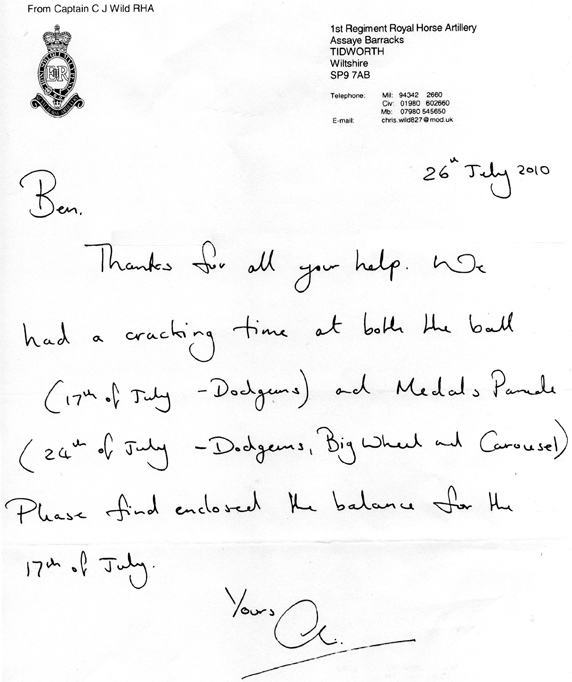 From Captain C J Wild RHA
1st Regiment Royal Horse Artillery
Assaye Barracks
TIDWORTH
Wiltshire
SP9 7AB
Telephone: Mil: 94342 2660
Civ: 01980 602660
Mb: 07980 545650
E-mail: chris.wild827@mod.uk
E II R
26th July 2010
Ben.
Thanks for all your help. We
had a cracking time at both the ball
(17th of July - Dodgems) and Medals Parade
(24th of July - Dodgems, Big Wheel and Carousel)
Please find enclosed the balance for the
17th of July.
Yours